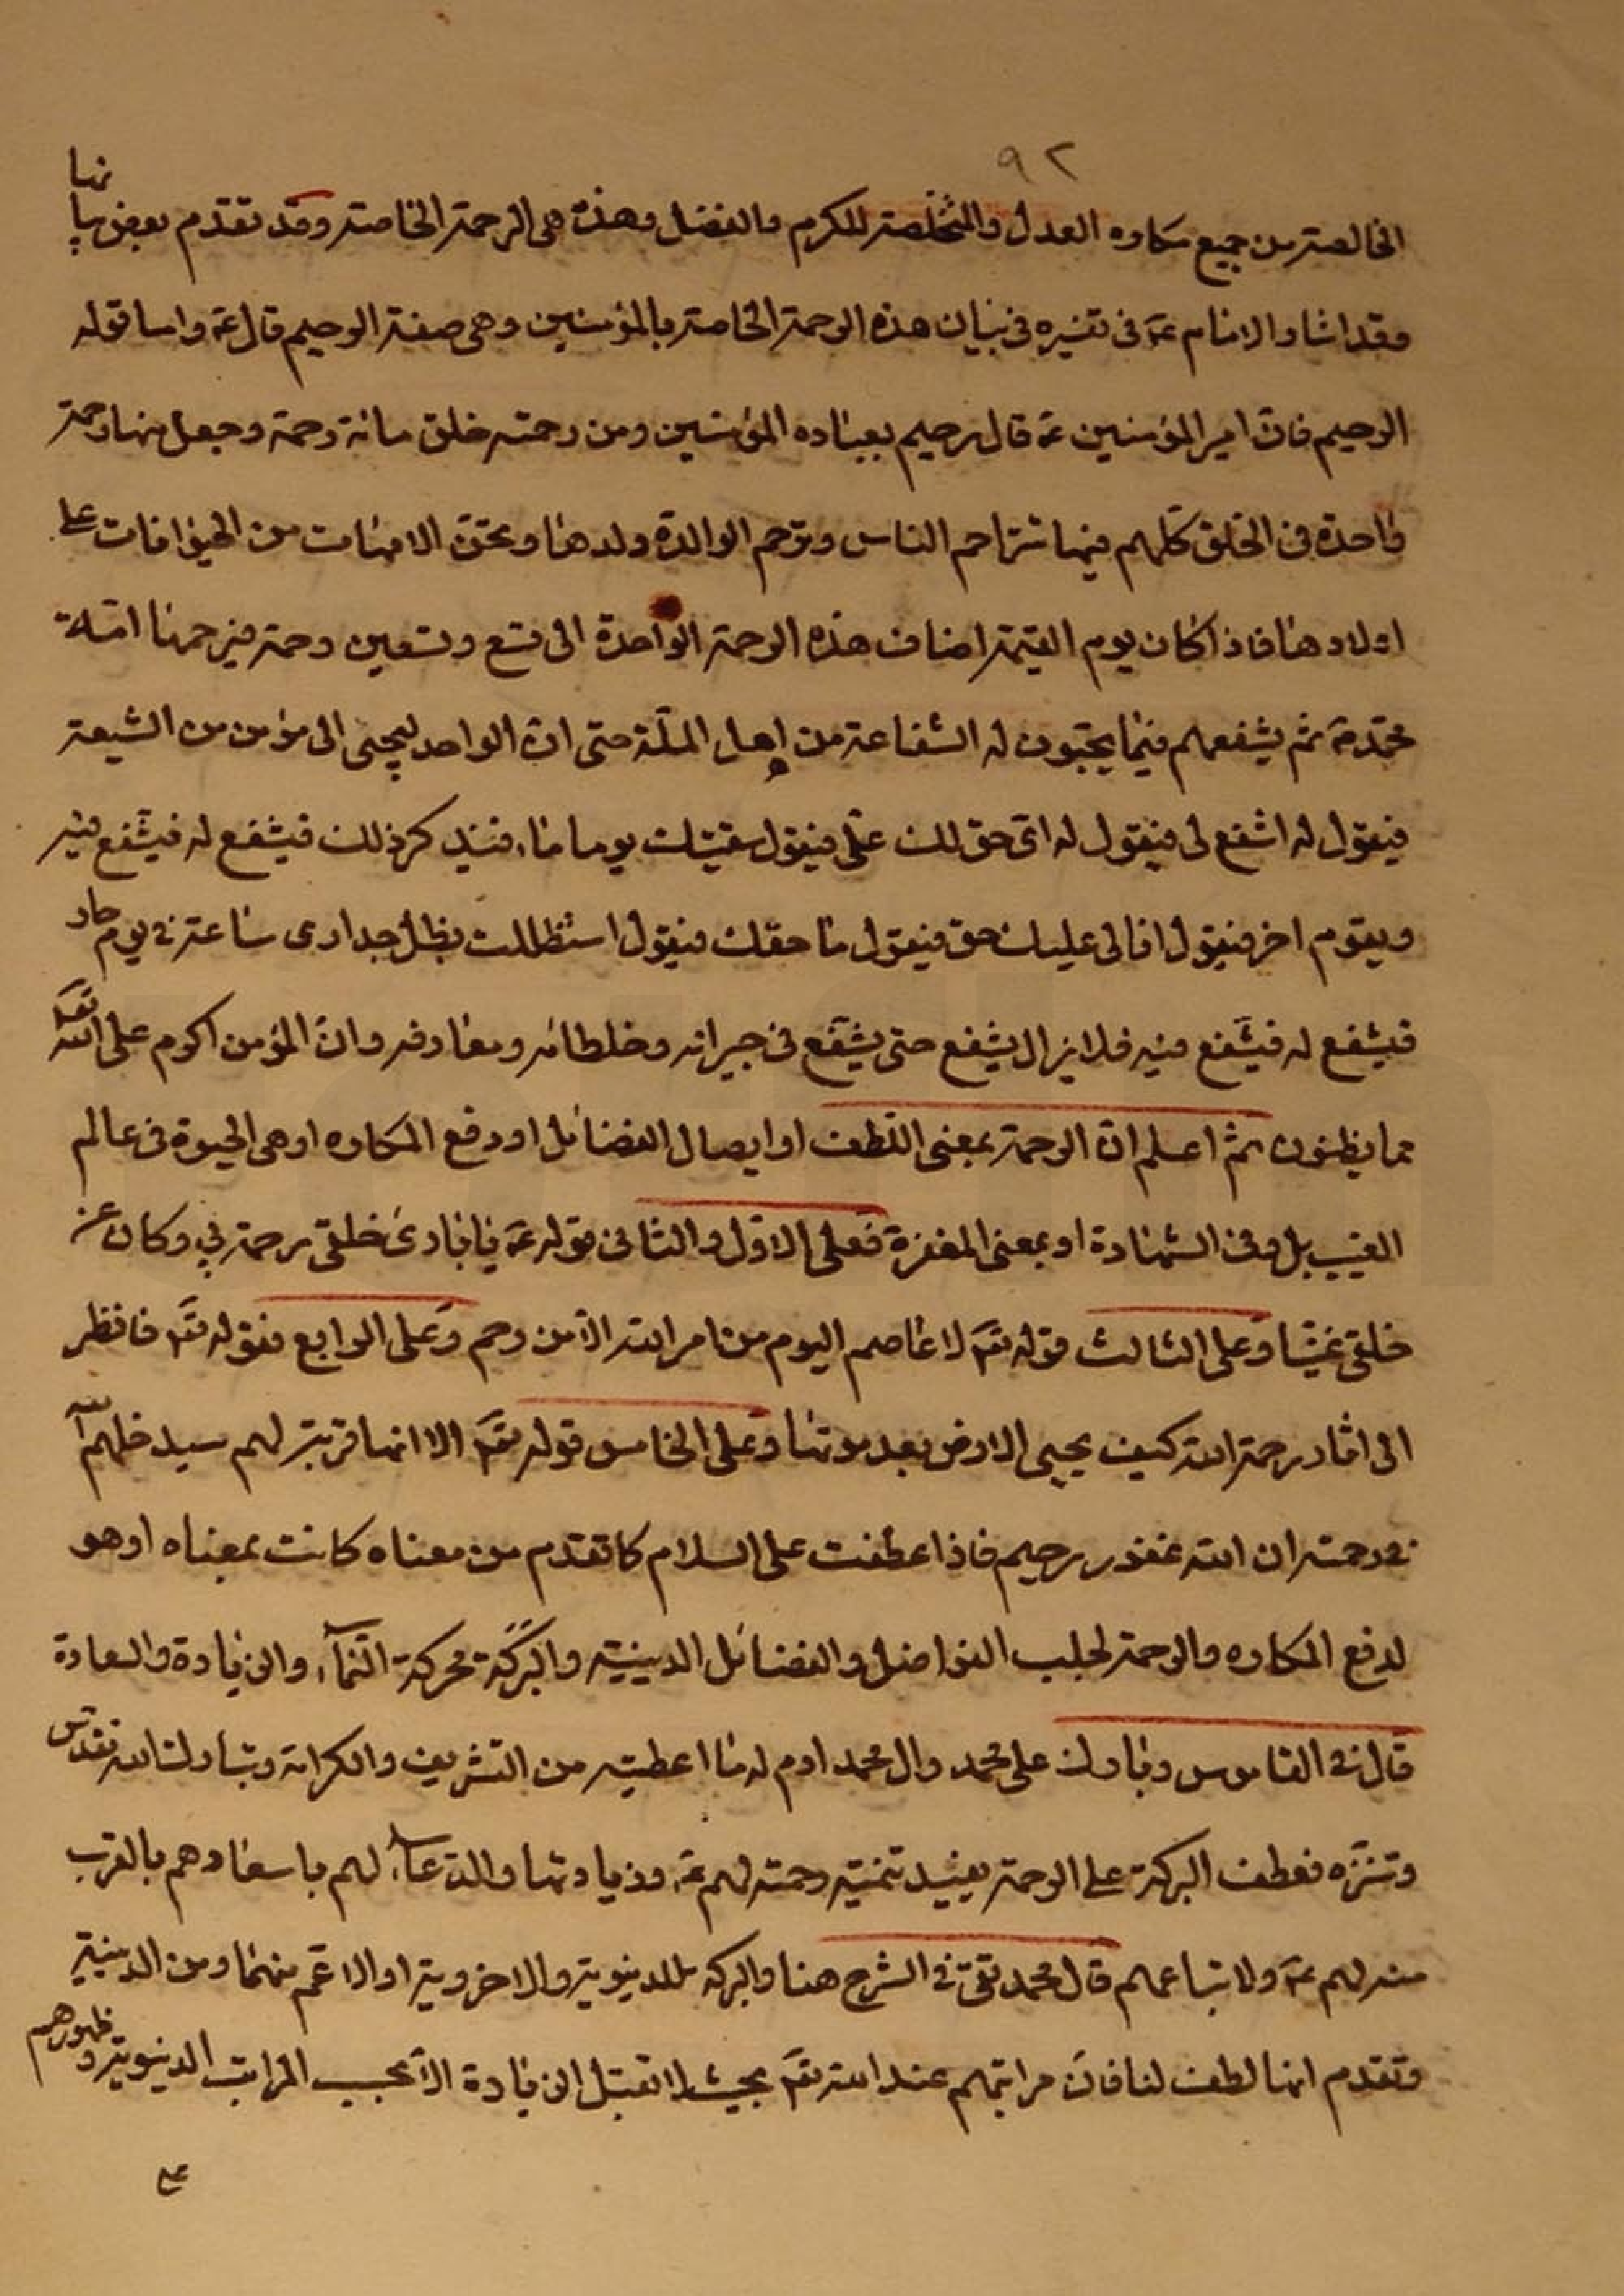 ٩٢
الخالصة من جميع مكاره العدل والمتخلصة للكرم والفضل وهذه هى الرحمة الخاصة وقد تقدم بعض بيانها
وقد اشار الامام عَ فى تفسيره فى بيان هذه الرحمة الخاصة بالمؤمنين وهى صفة الرحيم قال عَ واما قوله
الرحيم فان امير المؤمنين عَ قال رحيم بعباده المؤمنين ومن رحمته خلق مائة رحمة وجعل منها رحمة
واحدة فى الخلق كلهم فبها تتراحم الناس وترحم الوالدة ولدها وتحنن الامهات من الحيوانات على
اولادها فاذا كان يوم القيمة اضاف هذه الرحمة الواحدة الى تسع وتسعين رحمة فيرحم بها امة
محمد صَ ثم يشفعهم فيما يحبون له الشفاعة من اهل الملّة حتى انّ الواحد ليجيئ الى مؤمن من الشيعة
فيقول له اشفع لى فيقول له اىّ حق لك علىّ فيقول سقيتك يوما ماء فيذكر ذلك فيشفع له فيشفّع فيه
ويقوم اخر فيقول انا لى عليك حق فيقول ما حقك فيقول استظللت بظل جدارى ساعة فى يوم حار
فيشفع له فيشَفّع فيه فلا يزال يشفع حتى يشفّع فى جيرانه وخلطائه ومعارفه وانّ المؤمن اكرم على الله تعَ
مما يظنون ثمّ اعلم انّ الرحمة بمعنى اللّطف او ايصال الفضائل او دفع المكاره او هى الحيوة فى عالم
الغيب بل وفى الشهادة او بمعنى المغفرة فعلى الاوّل والثانى قوله عَ يا بادئ خلقى رحمة بى وكان عن
خلقى غنيّا وعلى الثالث قوله تعَ لا عاصم اليوم من امر الله الّا من رحم وعلى الرابع فقوله تعَ فانظر
الى اثار رحمة الله كيف يحيى الارض بعد موتها وعلى الخامس قوله تعَ الا انها قربة لهم سيدخلهم الله
فى رحمته ان الله غفور رحيم فاذا عطفت على السلام كما تقدم من معناه كانت بمعناه او هو
لدفع المكاره والرحمة لجلب الفواضل والفضائل الدينية والبركة محركة النّمآء والزيادة والسعادة
قال فى القاموس وبارك على محمد وال محمد ادم له ما اعطيته من التشريف والكرامة وتبارك الله تقدّس
وتنزّه فعطف البركة على الرحمة يفيد تنمية رحمته لهم عَ وزيادتها والدّعاء لهم باسعادهم بالقرب
منه لهم عَ ولاتباعهم قال محمد تقى فى الشرح هنا والبركة للدنيوية والاخروية او الاعّم منهما ومن الدينية
وتقدم انها لطف لنا فانّ مراتبهم عند الله تعَ بحيث لا تقبل الزيادة الّا بحسب المراتب الدنيوية وظهورهم